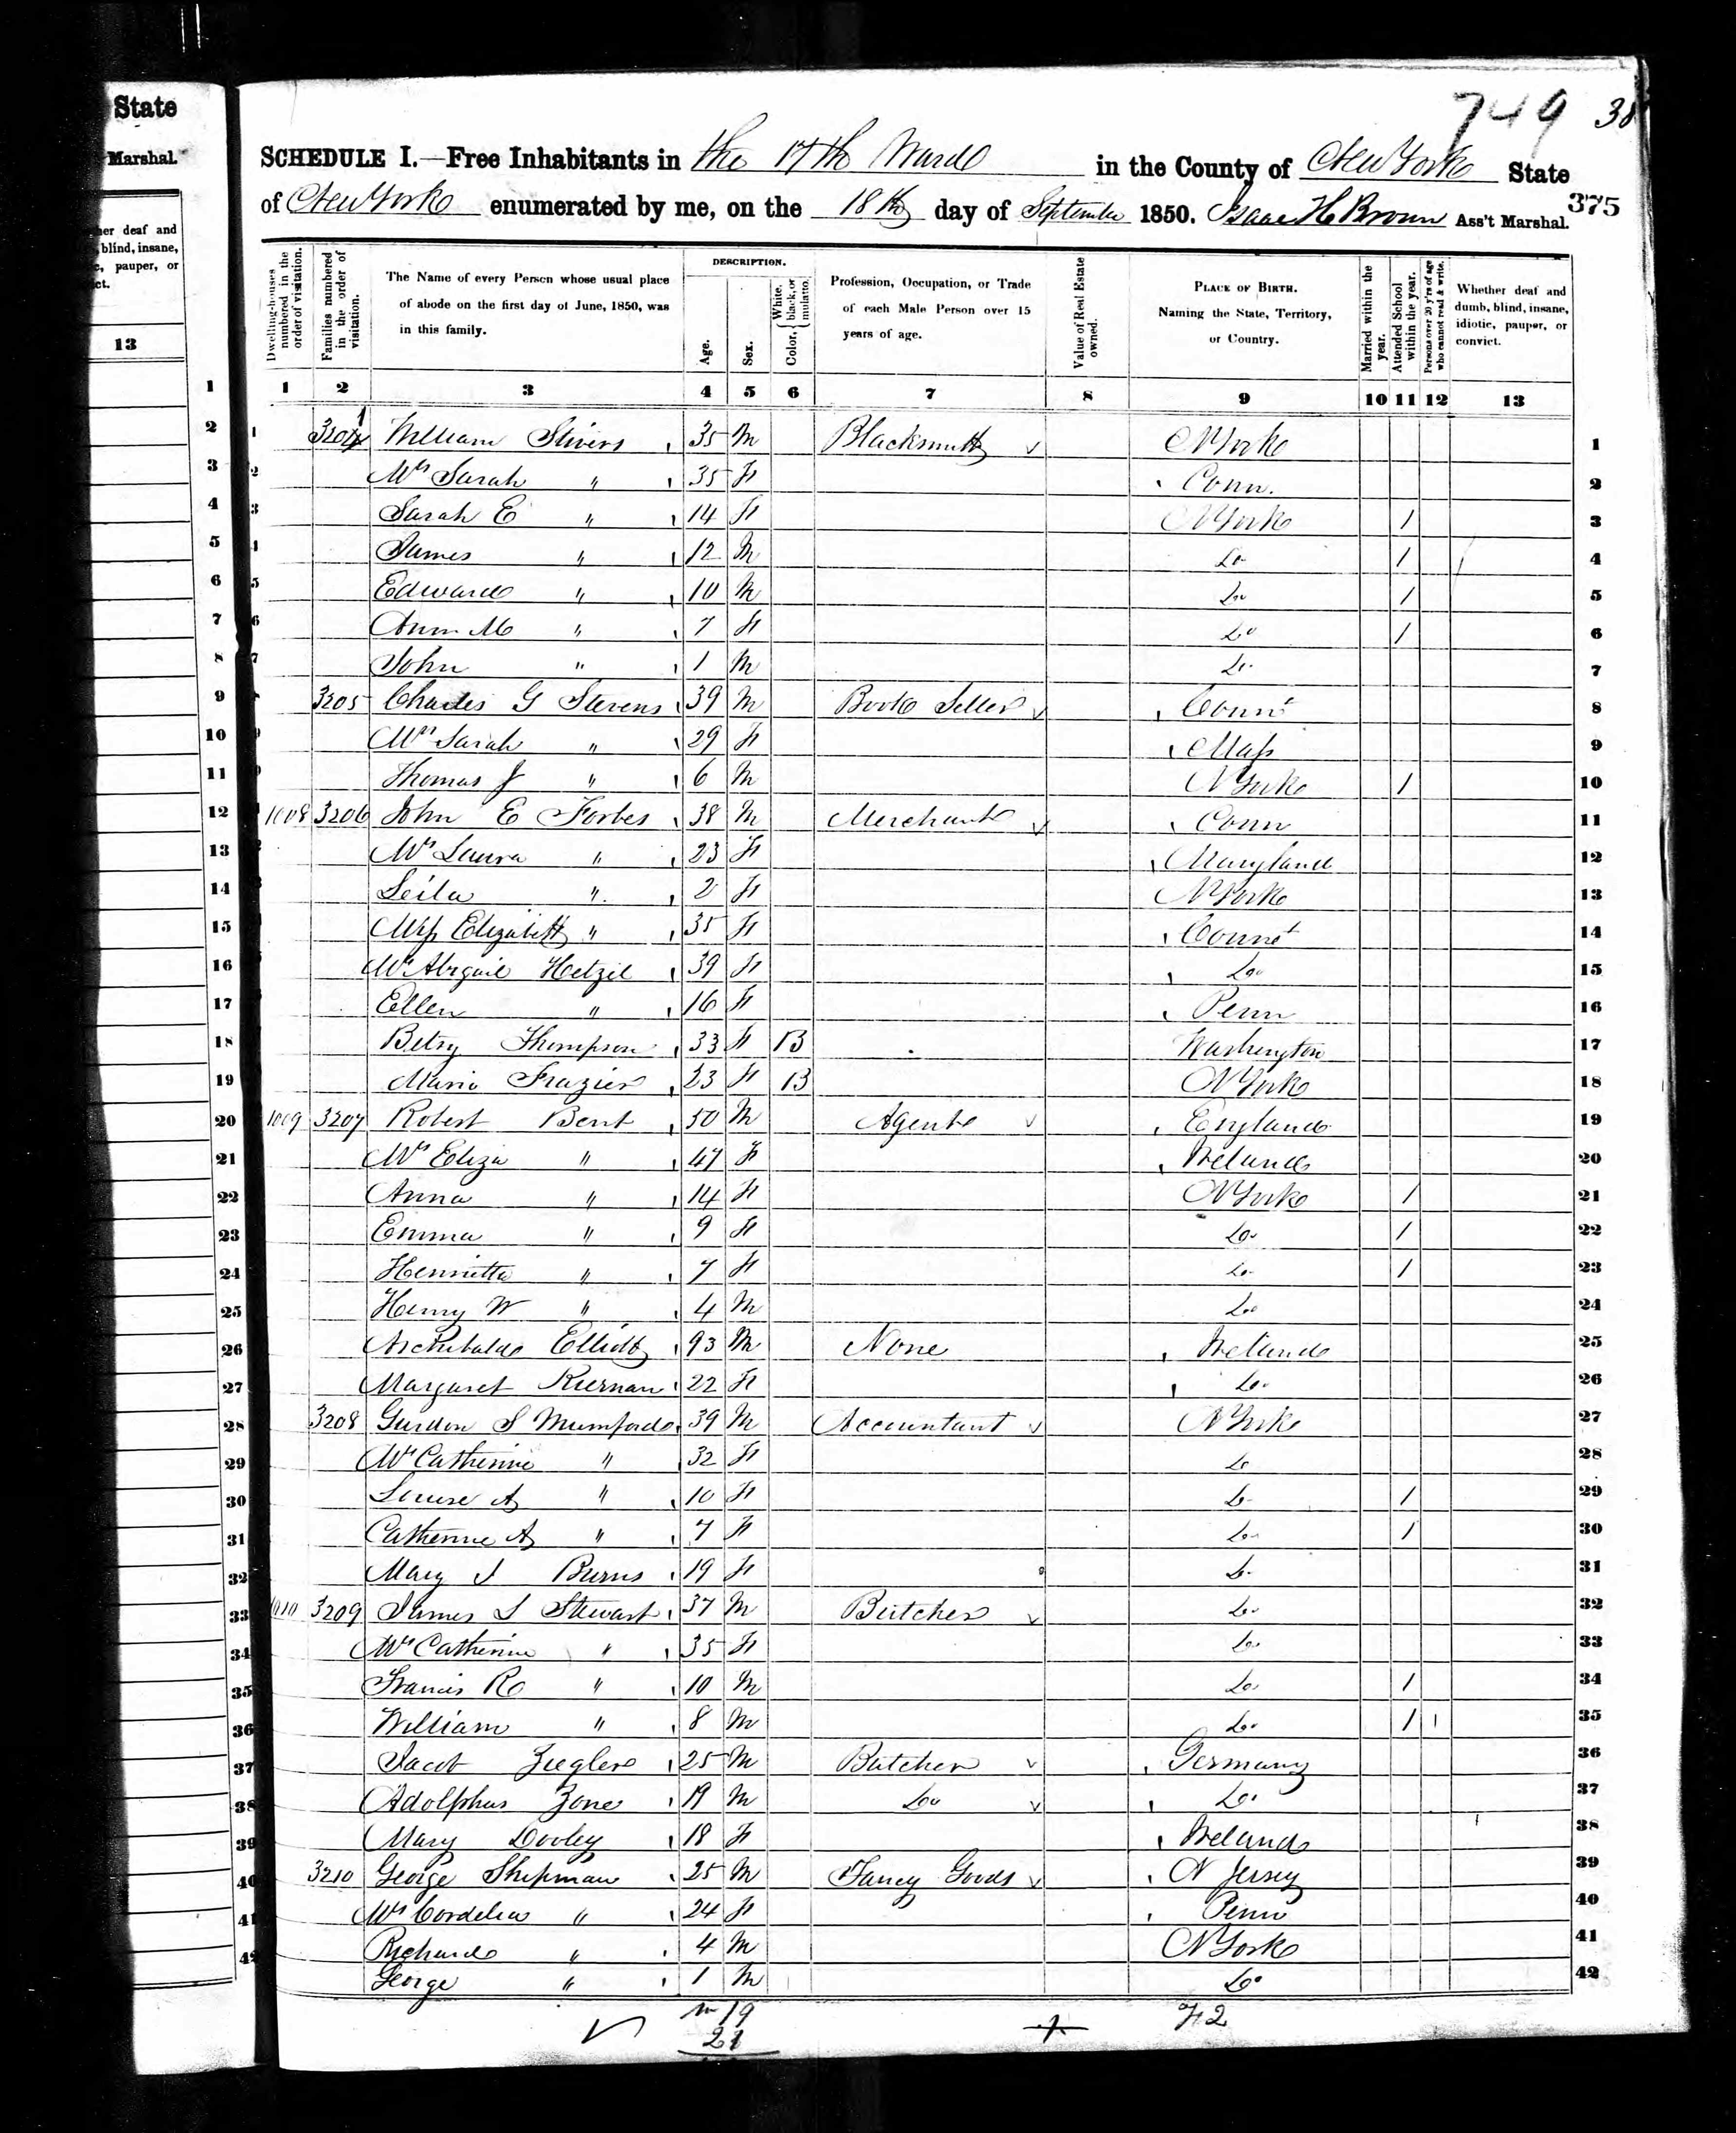 State
Marshal.
her deaf and
blind, insane,
pauper, or
ct.
13
749 38
SCHEDULE I.—Free Inhabitants in the 17th Ward in the County of New York State
of New York enumerated by me, on the 18th day of September 1850. Isaac H Brown Ass't Marshal. 375
Dwelling-houses numbered in the order of visitation.
Families numbered in the order of visitation.
The Name of every Person whose usual place of abode on the first day of June, 1850, was in this family.
DESCRIPTION.
Age.
Sex.
Color, { White, black, or mulatto.
Profession, Occupation, or Trade of each Male Person over 15 years of age.
Value of Real Estate owned.
PLACE OF BIRTH. Naming the State, Territory, or Country.
Married within the year.
Attended School within the year.
Persons over 20 y'rs of age who cannot read & write.
Whether deaf and dumb, blind, insane, idiotic, pauper, or convict.
1 2 3 4 5 6 7 8 9 10 11 12 13
William Stivers 35 M Blacksmith N York 1
Mrs Sarah " 35 F Conn. 2
Sarah E " 14 F N York 1 3
James " 12 M Do 1 4
Edward " 10 M Do 1 5
Ann M " 7 F Do 1 6
John " 1 M Do 7
3205 Charles G Stevens 39 M Book Seller Connt 8
Mrs Sarah " 29 F Mass 9
Thomas J " 6 M N York 1 10
1008 3206 John E Forbes 38 M Merchant Conn 11
Mrs Laura " 23 F Maryland 12
Leila " 2 F N York 13
Miss Elizabeth " 35 F Connt 14
Mrs Abigail Hetzil 39 F Do 15
Ellen " 16 F Penn 16
Betsy Thompson 33 F B Washington 17
Maria Frazier 23 F B N York 18
1009 3207 Robert Bent 50 M Agent England 19
Mrs Eliza " 47 F Ireland 20
Anna " 14 F N York 1 21
Emma " 9 F Do 1 22
Henrietta " 7 F Do 1 23
Henry W " 4 M Do 24
Archibald Elliott 93 M None Ireland 25
Margaret Kiernan 22 F Do 26
3208 Gurdon S Mumford 39 M Accountant N York 27
Mrs Catherine " 32 F Do 28
Louise A " 10 F Do 1 29
Catherine A " 7 F Do 1 30
Mary J Burns 19 F Do 31
1010 3209 James L Stewart 37 M Butcher Do 32
Mrs Catherine " 35 F Do 33
Francis R " 10 M Do 1 34
William " 8 M Do 1 35
Jacob Ziegler 25 M Butcher Germany 36
Adolphus Zone 19 M Do Do 37
Mary Dooley 18 F Ireland 38
3210 George Shipman 25 M Fancy Goods N Jersey 39
Mrs Cordelia " 24 F Penn 40
Richard " 4 M N York 41
George " 1 M Do 42
m 19